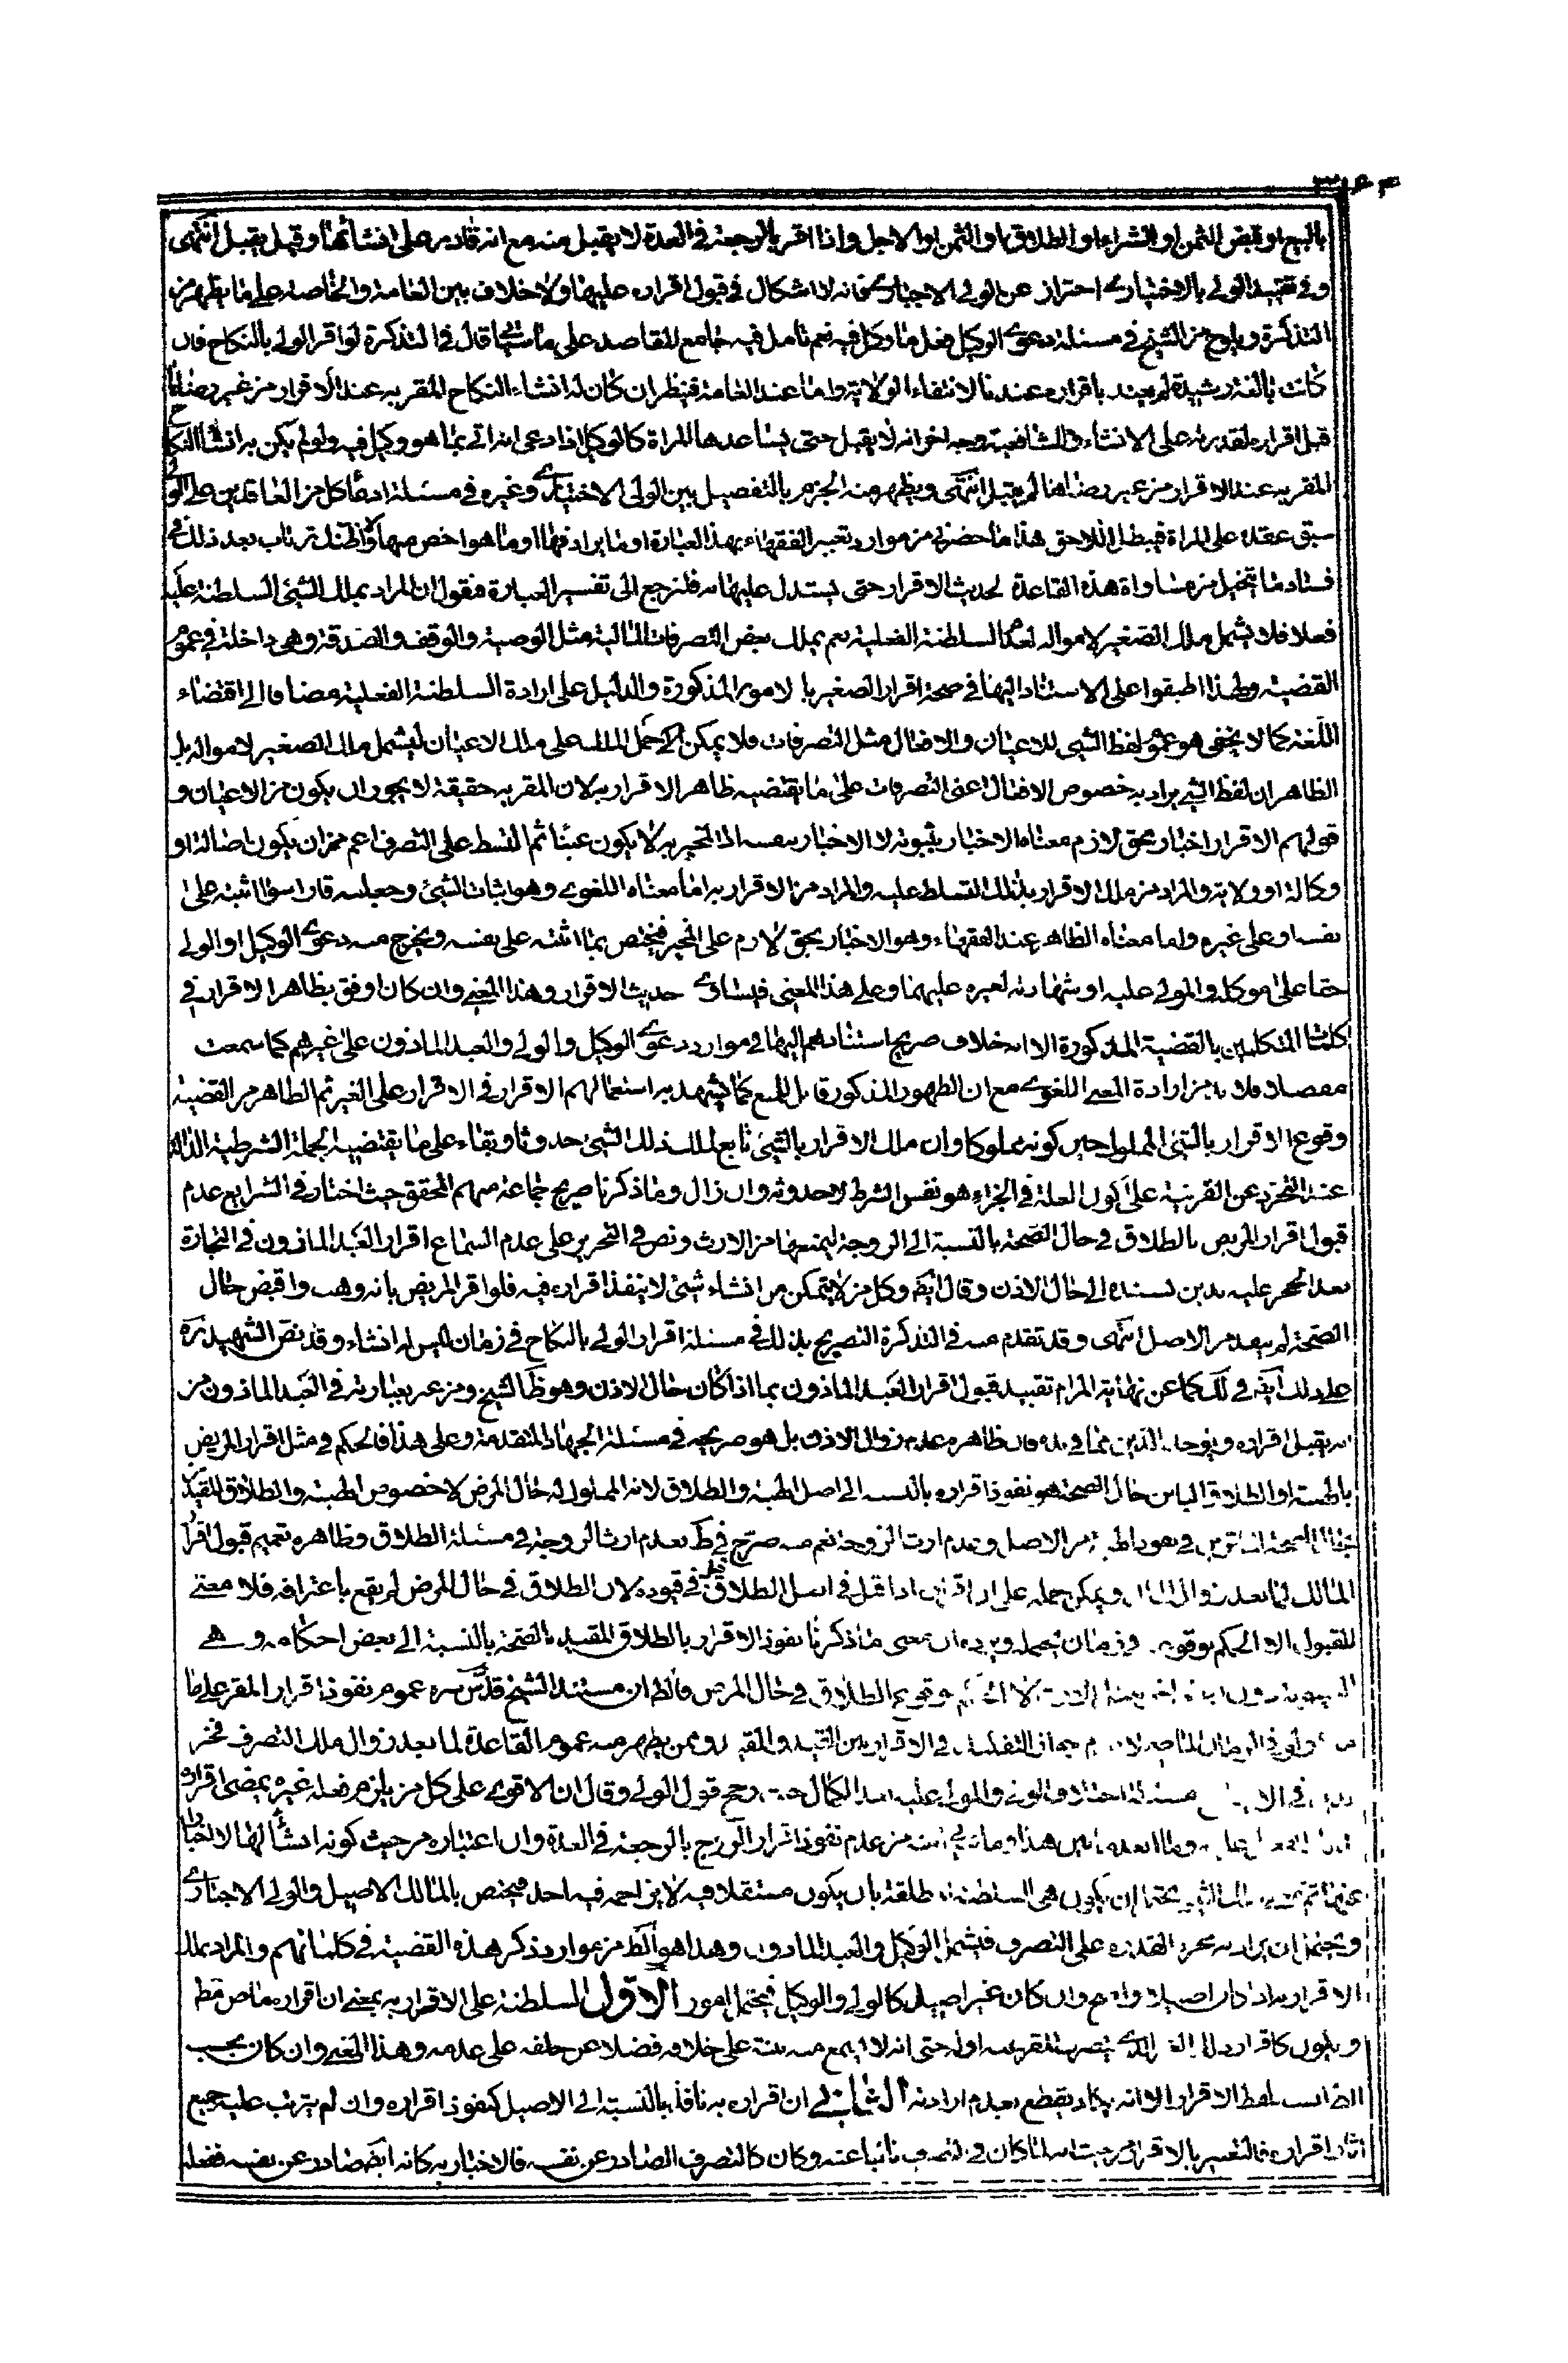 بالبيع او قبض الثمن او الشراء او الطلاق او الثمن او الاجل واذا اقر بالرجعة في العدة لا يقبل منه مع انه قادر على انشائها وقيل يقبل انتهى
وفي تقييد الولي بالاختياري احتراز عن الولي الاجباري فانه لا اشكال في قبول اقراره عليها ولا خلاف بين العامة والخاصة على ما يظهر من
التذكرة ويلوح من الشيخ في مسئلة دعوى الوكيل فعل ما وكل فيه نعم تامل فيه جامع المقاصد على ما سيجئ قال في التذكرة لو اقر الولي بالنكاح فان
كانت بالغة رشيدة لم يعتد باقراره عندنا لانتفاء الولاية واما عند العامة فينظر ان كان له انشاء النكاح المقر به عند الاقرار من غير رضاها
قبل اقراره لقدرته على الانشاء وللشافعية وجه اخر انه لا يقبل حتى يساعدها المراة كالوكيل اذا ادعى انه اتى بما هو وكيل فيه ولو لم يكن به انشاء النكاح
المقر به عند الاقرار من غير رضاها لم يقبل انتهى ويظهر منه الجزم بالتفصيل بين الولي الاختياري وغيره في مسئلة ادعاء كل من العاقدين على الولي
سبق عقده على المراة فيبطل اللاحق هذا ما حضرني من موارد تعبير الفقهاء بهذا العبارة او ما يرادفها او ما هو اخص منها ولا اظنك ترتاب بعد ذلك في
فساد ما يتخيل من مساواة هذه القاعدة لحديث الاقرار حتى يستدل عليها به فلنرجع الى تفسير العبارة فنقول ان المراد بملك الشئ السلطنة عليه
فعلا فلا يشمل ملك الصغير لامواله لعدم السلطنة الفعلية نعم يملك بعض التصرفات المالية مثل الوصية والوقف والصدقة وهي داخلة في عموم
القضية ولهذا اطبقوا على الاستناد اليها في صحة اقرار الصغير بالامور المذكورة والدليل على ارادة السلطنة الفعلية مضافا الى اقتضاء
اللغة كما لا يخفى هو عموم لفظ الشئ للاعيان والافعال مثل التصرفات فلا يمكن حمل الملك على ملك الاعيان ليشمل ملك الصغير لامواله بل
الظاهر ان لفظ الشئ يراد به خصوص الافعال اعني التصرفات على ما يقتضيه ظاهر الاقرار به لان المقر به حقيقة لا يجوز ان يكون من الاعيان و
قولهم الاقرار اخبار بحق لازم معناه الاخبار بثبوته لا الاخبار بنفسه اذ المخبر به لا يكون عينا ثم التسلط على التصرف اعم من ان يكون اصالة او
وكالة او ولاية والمراد من ملك الاقرار بذلك التسلط عليه والمراد من الاقرار به اما معناه اللغوي وهو اثبات الشئ وجعله قارا سواء اثبته على
نفسه او على غيره واما معناه الظاهر عند الفقهاء وهو الاخبار بحق لازم على المخبر فيختص بما اثبته على نفسه ويخرج منه دعوى الوكيل او الولي
حقا على موكله والمولى عليه او شهادته لغيره عليهما وعلى هذا المعنى فيساوي حديث الاقرار وهذا المعنى وان كان اوفق بظاهر الاقرار في
كلمات المتكلمين بالقضية المذكورة الا انه خلاف صريح استنادهم اليها في موارد دعوى الوكيل والولي والعبد الماذون على غيرهم كما سمعت
مفصلا فلا بد من ارادة المعنى اللغوي مع ان الظهور المذكور قابل للمنع كما يشهد به استعمالهم الاقرار في الاقرار على الغير ثم الظاهر من القضية
وقوع الاقرار بالشئ المملوك حين كونه مملوكا وان ملك الاقرار بالشئ تابع لملك ذلك الشئ حدوثا وبقاء على ما يقتضيه الجملة الشرطية الدالة
عند التجرد عن القرينة على كون العلة في الجزاء هو نفس الشرط لا حدوثه وان زال وما ذكرنا صريح جماعة منهم المحقق حيث اختار في الشرايع عدم
قبول اقرار المريض بالطلاق في حال الصحة بالنسبة الى الزوجة ليمنعها من الارث ونص في التحرير على عدم السماع اقرار العبد الماذون في التجارة
بعد الحجر عليه بدين تسنده الى حال الاذن وقال ايضا وكل من لا يتمكن من انشاء شئ لا ينفذ اقراره فيه فلو اقر المريض بانه وهب واقبض حال
الصحة لم ينفذ من الاصل انتهى وقد تقدم منه في التذكرة التصريح بذلك في مسئلة اقرار الولي بالنكاح في زمان ليس له انشاء وقد نص الشهيد ره
على ذلك ايضا في لك كما عن نهاية المرام تقييد قبول اقرار العبد الماذون بما اذا كان حال الاذن وهو ظ الشيخ ومن عبر بعبارته في العبد الماذون من
انه يقبل اقراره ويؤخذ الدين مما في يده فان ظاهره عدم زوال الاذن بل هو صريحه في مسئلة الجهاد المتقدمة وعلى هذا فالحكم في مثل اقرار المريض
بالهبة او الطلاق البائن حال الصحة هو نفوذ اقراره بالنسبة الى اصل الهبة والطلاق لانه المملوك له حال المرض لا خصوص الهبة والطلاق المقيد
بحال الصحة من الاصل وعدم ارث الزوجة نعم منه صرح في ط بعدم ارث الزوجة في مسئلة الطلاق وظاهره تعميم قبول اقرار
المالك لما بعد زوال الملك ويمكن حمله على ان اقراره اذا قبل في اصل الطلاق قبل في قيوده لان الطلاق في حال المرض لم يقع باعترافه فلا معنى
للقبول الا الحكم بوقوعه في زمان يحمله ويرده ان معنى ما ذكرنا نفوذ الاقرار بالطلاق المقيد بالصحة بالنسبة الى بعض احكامه وهي
وقوع الطلاق في حال المرض فالظ ان مستند الشيخ قدس سره عموم نفوذ اقرار المقر على ما
جواز التفكيك في الاقرار بين القيد والمقيد وممن يظهر منه عموم القاعدة لما بعد زوال ملك التصرف فخر
الدين في الايضاح مسئلة اختلاف الولي والمولى عليه بعد الكمال رجح قول الولي وقال ان الاقوى على كل من يلزم فعله غيره يمضي اقراره
من عدم نفوذ اقرار الزوج بالرجعة في العدة وان اعتباره من حيث كونه انشاء لها لا اخبارا
عنها ثم يحتمل ان يكون هي السلطنة المطلقة بان يكون مستقلا فيه لا يزاحمه فيه احد فيختص بالمالك الاصيل والولي الاجباري
ويحتمل ان يراد به مجرد القدرة على التصرف فيشمل الوكيل والعبد الماذون وهذا هو الظ من موارد ذكر هذه القضية في كلماتهم والمراد بملك
الاقرار به اذا كان اصيلا واضح وان كان غير اصيل كالولي والوكيل فيحتمل امور الاول السلطنة على الاقرار به بمعنى ان اقراره ماض مطلقا
ويكون كاقرار ذلك الغير الذي يتصرف المقر عنه او له حتى انه لا يسمع منه بينة على خلافه فضلا عن حلفه على عدمه وهذا المعنى وان كان بحسب
الظ انسب بلفظ الاقرار الا انه يكاد يقطع بعدم ارادته الثاني ان اقراره به نافذ بالنسبة الى الاصيل كنفوذ اقراره وان لم يترتب عليه جميع
اثار اقراره فالتعبير بالاقرار من حيث انه لما كان في التصرف نائبا عنه وكان كالتصرف الصادر عن نفسه فالاخبار به كانه ايضا صادر عن نفسه ففعله